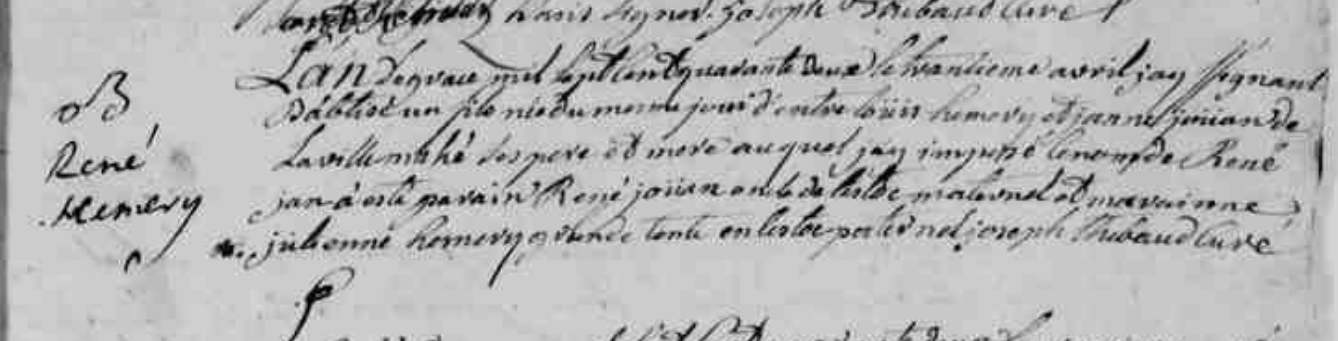 paris signer. joseph Thibaud Curé
B
René
hemery
L'an de grace mil sept cent quarante deux le trantieme avril jay ssignant
Babtisé un fils né du meme jour d'entre loüis hemery et janne joüan de
la ville mahé ses pere et mere auquel jay imposé le nom de René
jan a esté parain René joüan oncle de lestoc maternel et marainne
julienne hemery grande tente en lestoc paternel joseph Thibaud Curé